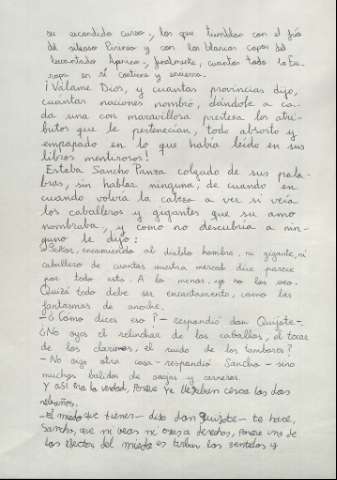 su escondido curso, los que tiemblan con el frío
de silboso Pirineo y con los blancos copos del
levantado Apenino, finalmente, cuantos toda la Eu-
ropa en sí contiene y encierra.
¡Válame Dios, y cuantas provincias dijo,
cuantas naciones nombró, dándole a ca-
da una con maravillosa presteza los atri-
butos que le pertenecían, todo absorto y
empapado en lo que había leído en sus
libros mentirosos!
Estaba Sancho Panza colgado de sus pala-
bras, sin hablar ninguna, de cuando en
cuando volvía la cabeza a ver si veía
los caballeros y gigantes que su amo
nombraba, y como no descubría a nin-
guno le dijo:
-Señor, encomiendo al diablo hombre, ni gigante, ni
caballero de cuantos vuestra merced dice parece
por todo esto. A lo menos, yo no los veo.
Quizá todo debe ser encantamento, como las
fantasmas de anoche.
-¿Cómo dices eso? - respondió don Quijote -.
¿No oyes el relinchar de los caballos, el tocar
de los clarines, el ruido de los tambores?
- No oigo otra cosa - respondió Sancho - sino
muchos balidos de ovejas y carneros.
Y así era la verdad, porque ya llegaban cerca los dos
rebaños.
-El miedo que tienes - dijo don Quijote - te hace,
Sancho, que ni veas ni oyas a derechas, porque uno de
los efectos del miedo es turbar los sentidos y